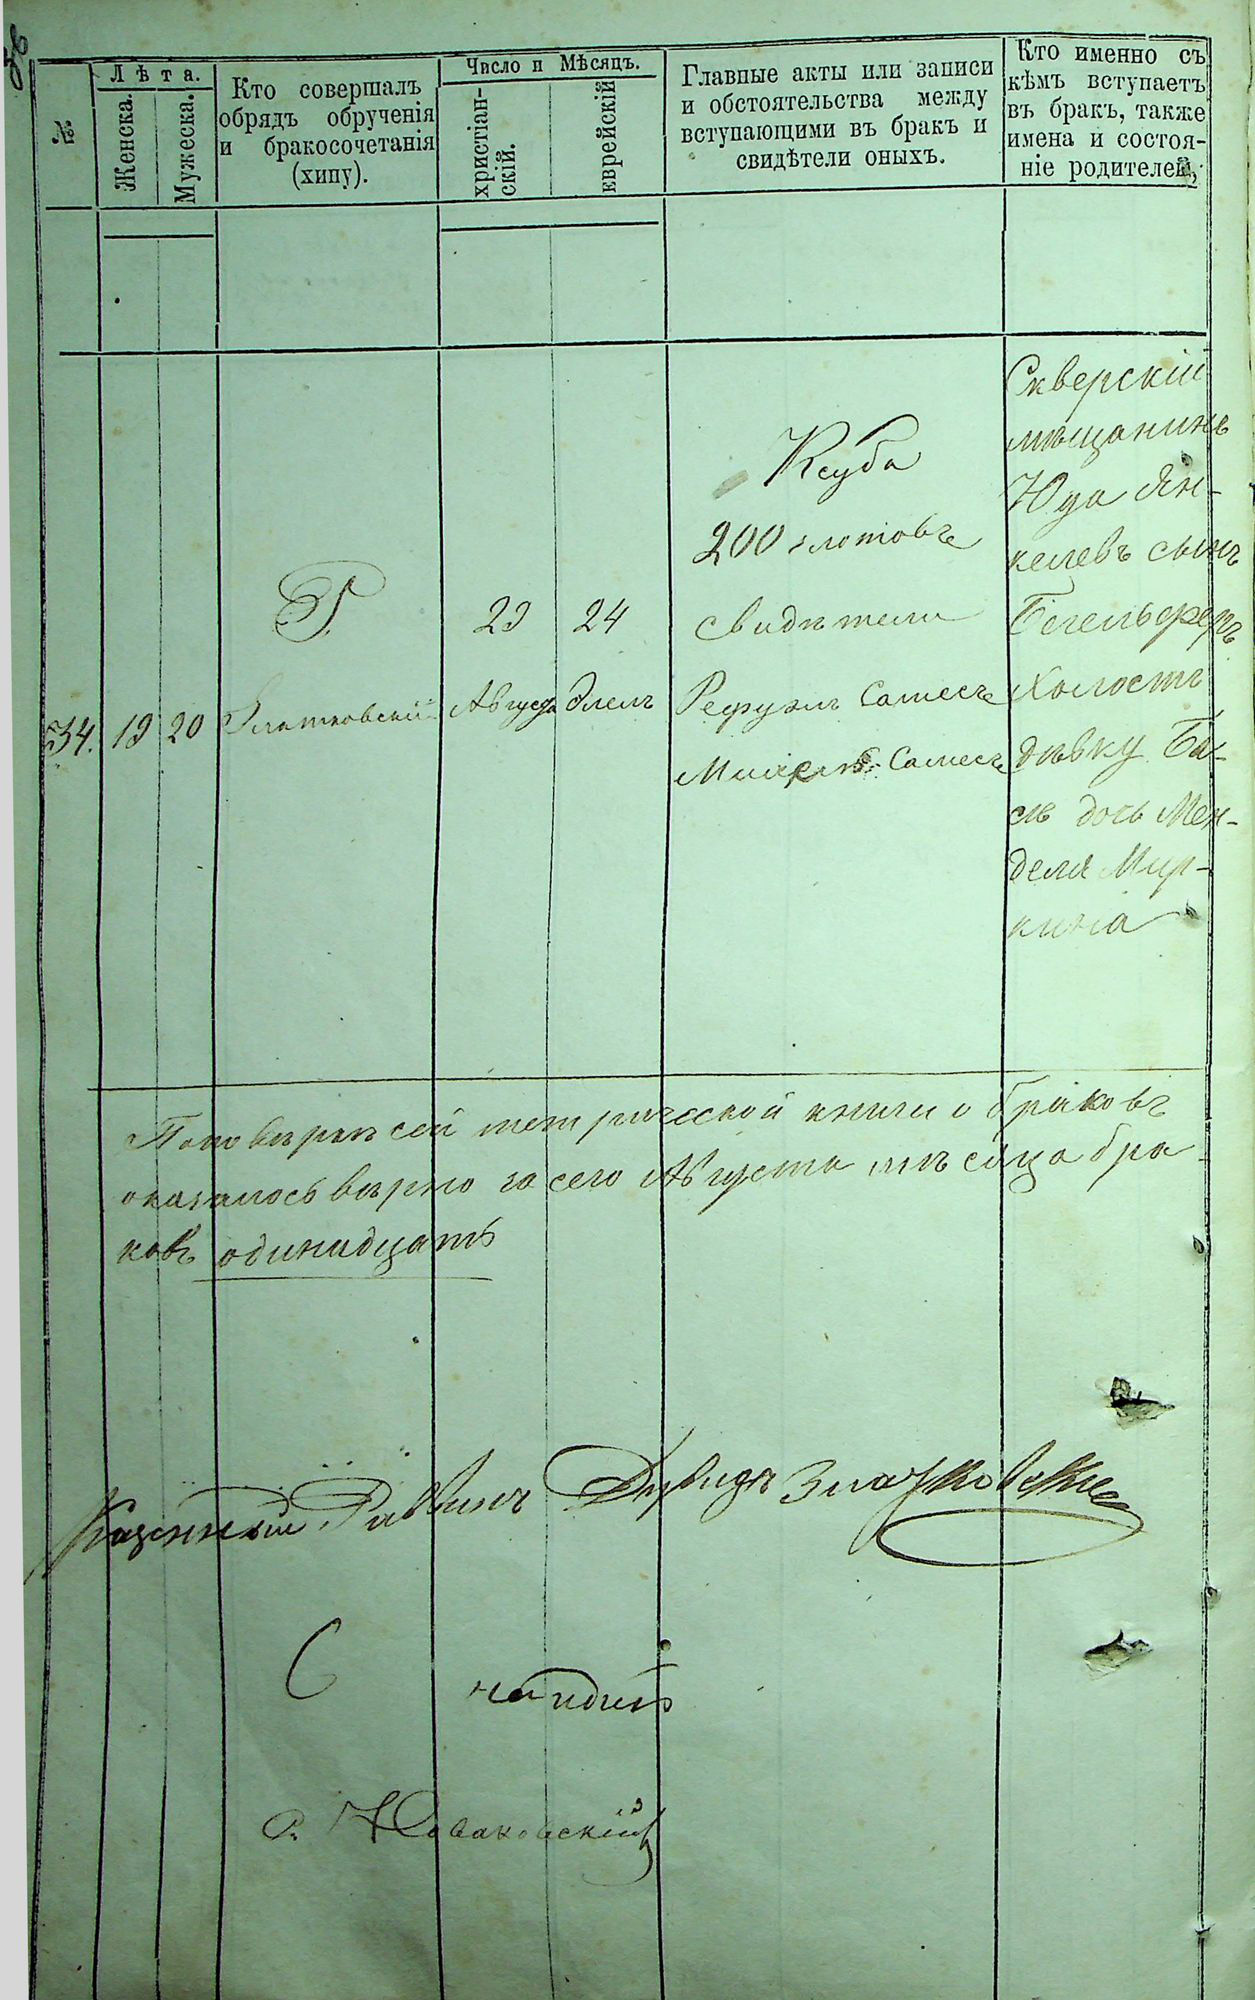 №
Лѣта.
Женска.
Мужеска.
Кто совершалъ
обрядъ обрученія
и бракосочетанія
(хипу).
Число и Мѣсяцъ.
христіан-
скій.
еврейскій
Главные акты или записи
и обстоятельства между
вступающими въ бракъ и
свидѣтели оныхъ.
Кто именно съ
кѣмъ вступаетъ
въ бракъ, также
имена и состоя-
ніе родителей.
34.
19
20
Р.
Златковскій
29
Августа
24
Элелъ
Ксуба
200 злотовъ
свидѣтели
Рефуэлъ Самесъ
Самесъ
Скверскій
мѣщанинъ
Юда Ян-
келевъ сынъ
Холостъ
дѣвку Ба-
сю дочь Мен-
деля Мир-
кина
По повѣркѣ сей метрической книги о браковъ
оказалось вѣрно за сего Августа мѣсяца бра
ковъ одинадцать
Казенный Раввинъ Давидъ Златковскій